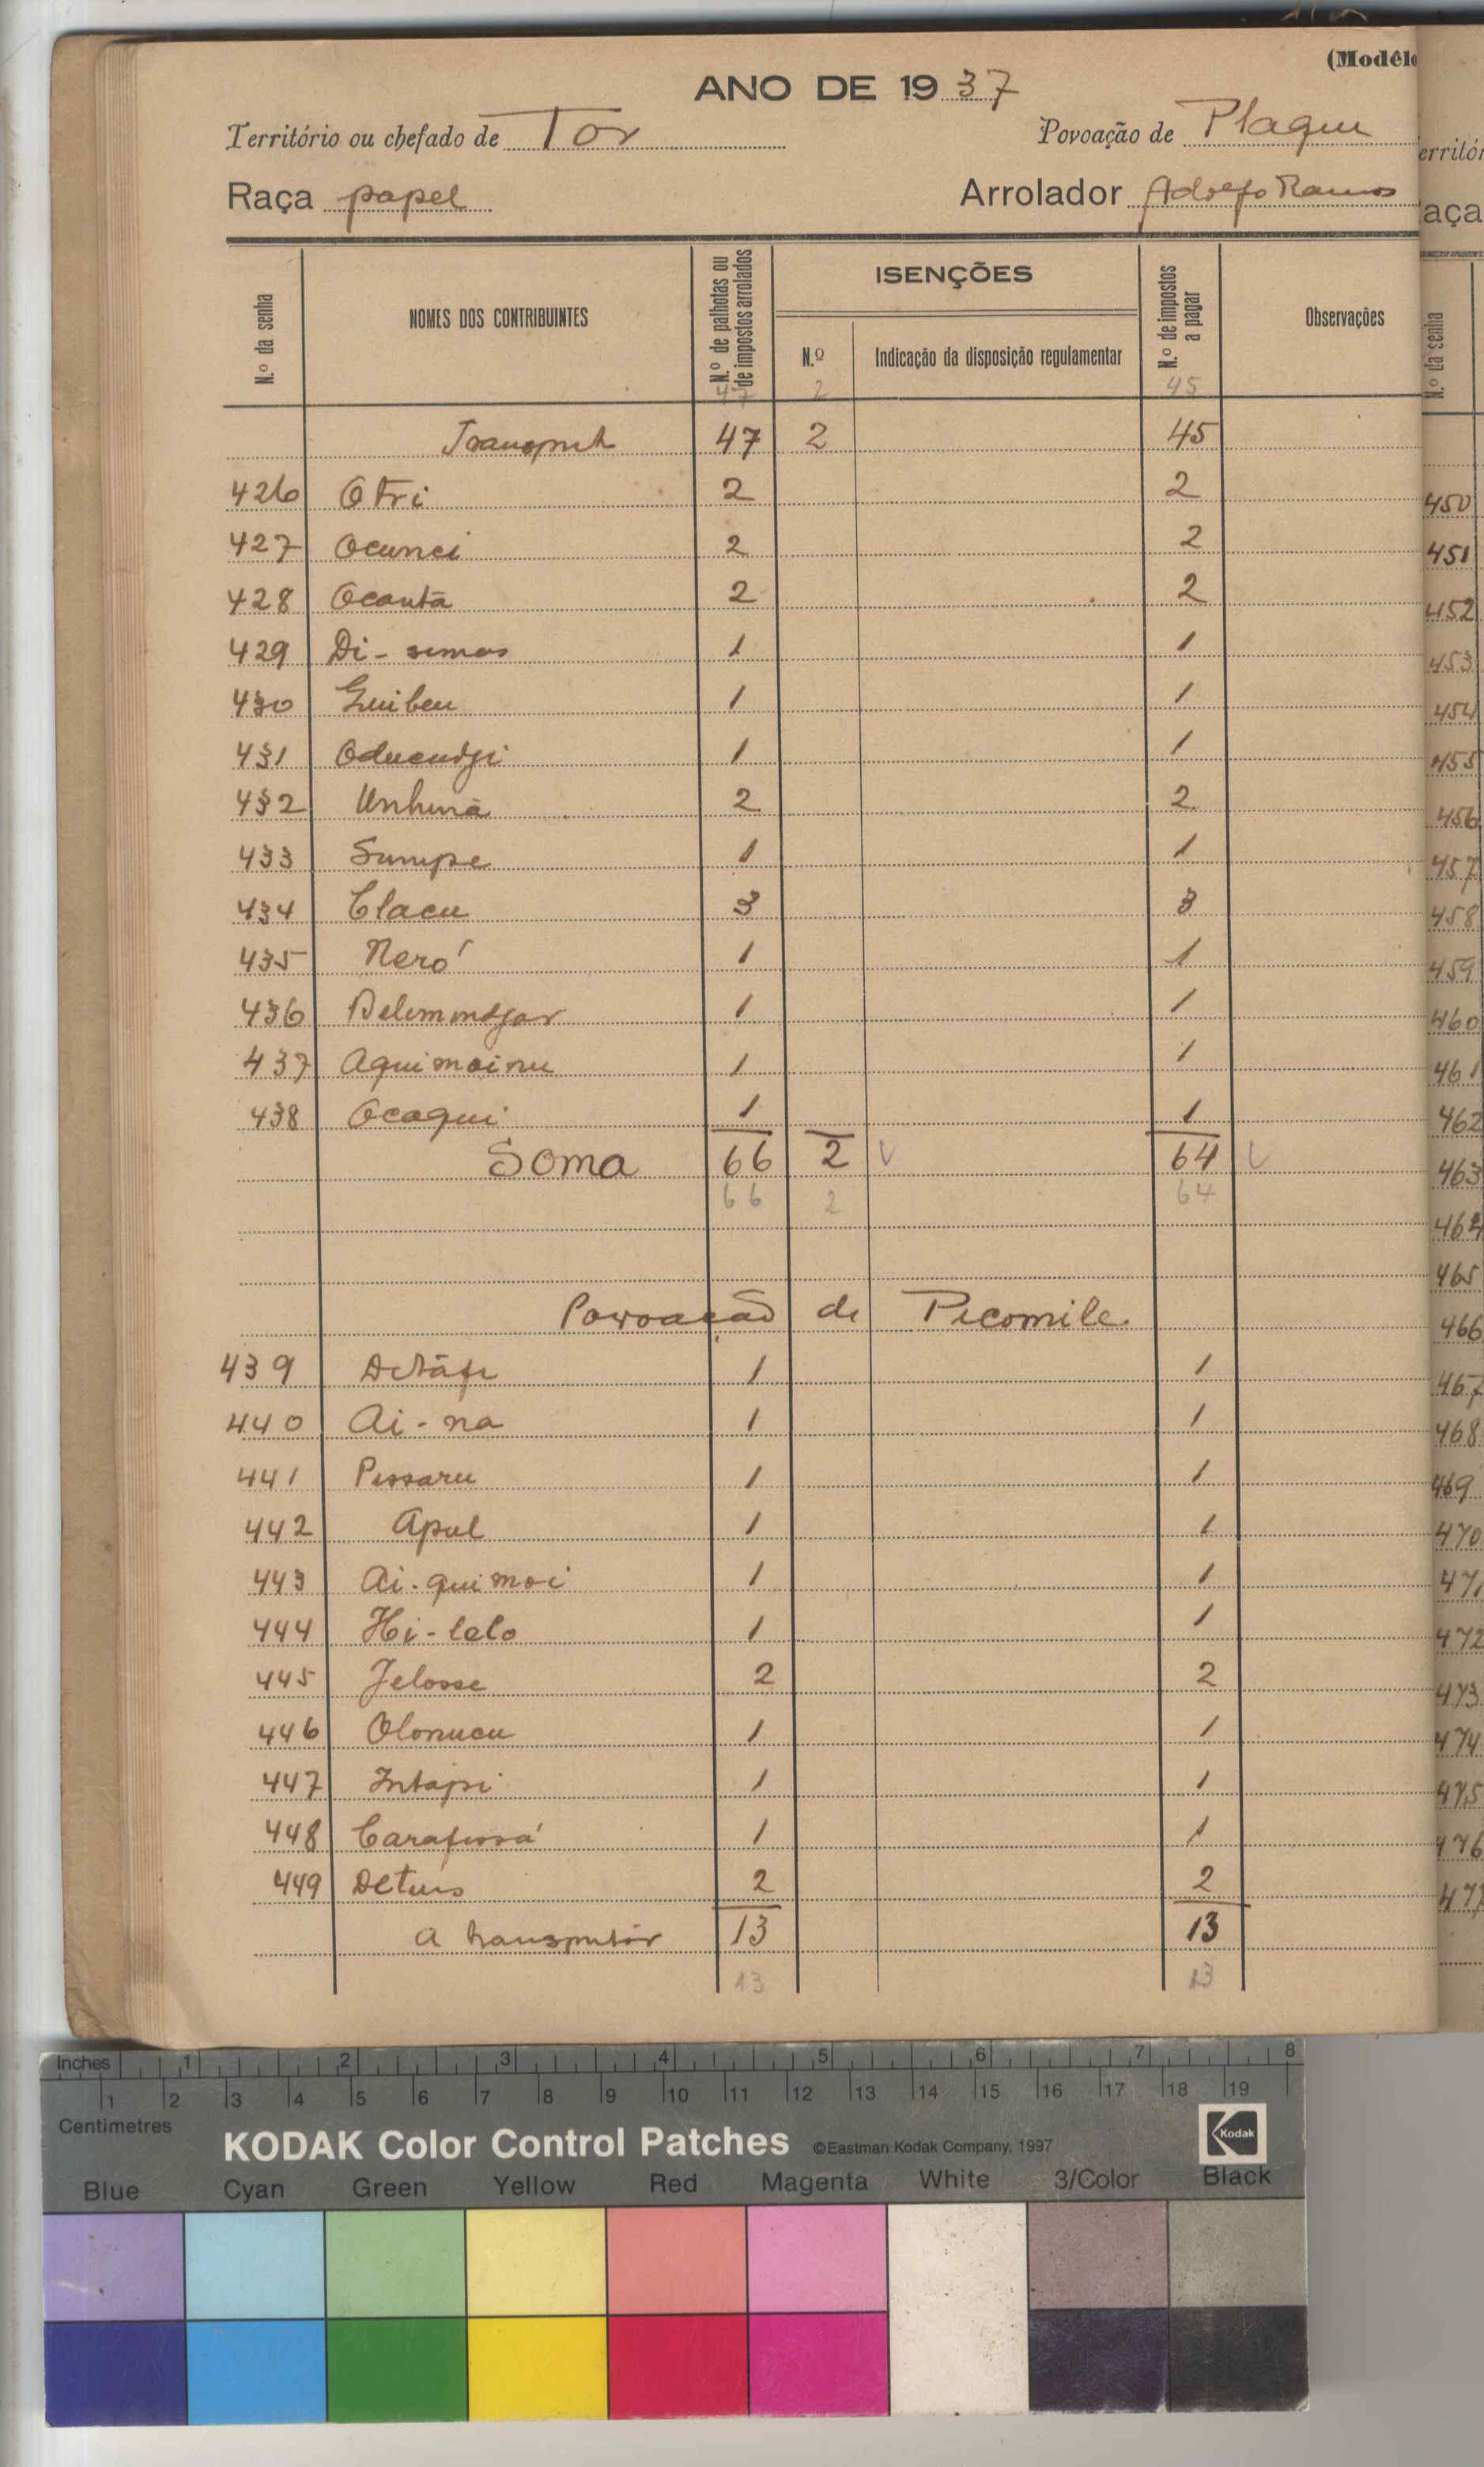 (Modêlo
ANO DE 1937
Território ou chefado de Tor
Povoação de Plaqui
Raça papel
Arrolador Adolfo Ramos
N.º da senha
NOMES DOS CONTRIBUINTES
N.º de palhotas ou de impostos arrolados
ISENÇÕES
N.º
Indicação da disposição regulamentar
N.º de impostos a pagar
Observações
47 2 45
Transporte 47 2 45
426 Otri 2 2
427 Ocunei 2 2
428 Ocantã 2 2
429 Di-simas 1 1
430 Guibeu 1 1
431 Oducudji 1 1
432 Unhunã 2 2
433 Sumpe 1 1
434 Clacu 3 3
435 Neró 1 1
436 Belimindjar 1 1
437 Aquimoinu 1 1
438 Ocaqui 1 1
Soma 66 2 64
66 2 64
Povoação de Picomile
439 1 1
440 Ai-na 1 1
441 Pissaru 1 1
442 Apul 1 1
443 Ai-quimoi 1 1
444 Hi-lelo 1 1
445 Jelosse 2 2
446 Olonucu 1 1
447 Intápi 1 1
448 Carafussá 1 1
449 2 2
A transportar 13 13
13 13
erritór
aça
N.º da senha
450
451
452
453
454
455
456
457
458
459
460
461
462
463
464
465
466
467
468
469
470
471
472
473
474
475
476
477
Inches 1 2 3 4 5 6 7 8
1 2 3 4 5 6 7 8 9 10 11 12 13 14 15 16 17 18 19
Centimetres
KODAK Color Control Patches ©Eastman Kodak Company, 1997 Kodak
Blue Cyan Green Yellow Red Magenta White 3/Color Black